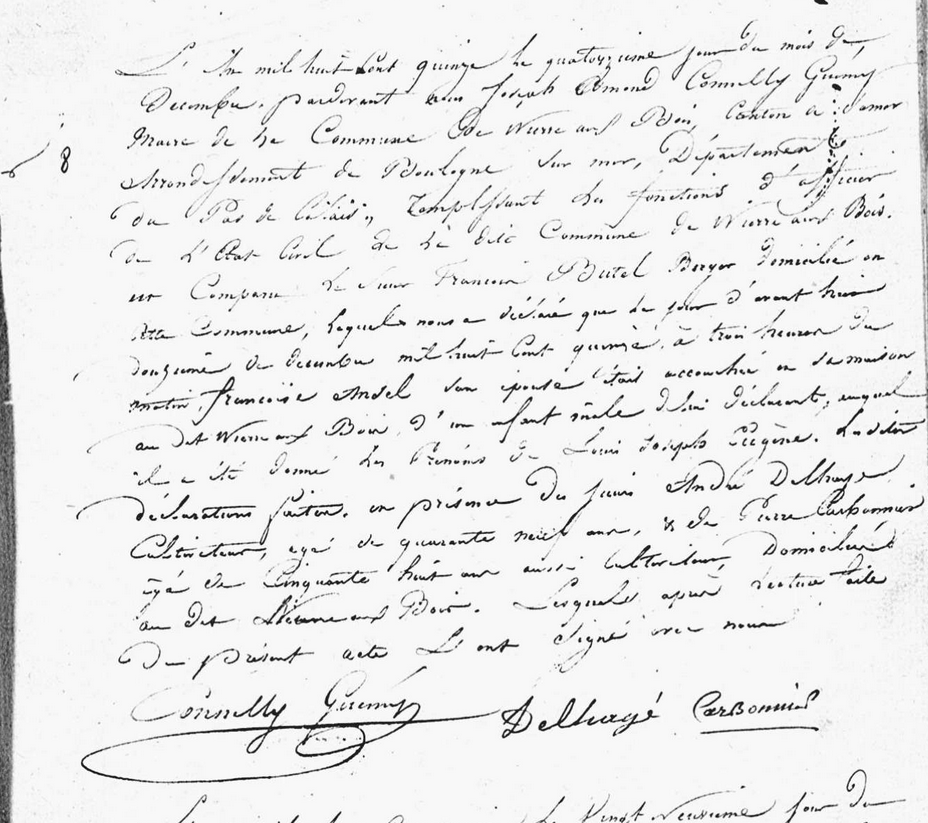 L'An mil huit Cent quinze le quatorzieme jour du mois de
Decembre. pardevant nous Joseph Amond Connelly Guémy
Maire de la Commune de Wierre aux Bois, Canton de Samer
Arrondissement de Boulogne sur mer, Département
du Pas de Calais, Remplissant les fonctions d'officier
de l'Etat Civil de la dite Commune de Wierre aux Bois.
est Comparu le sieur Francois Butel Berger domicilié en
cette Commune, lequel nous a déclaré que le jour d'avant hier
douzieme de decembre mil huit Cent quinze, à trois heures du
matin, françoise Ansel son épouse était accouchée en sa maison
au dit Wierre aux Bois, d'un enfant mâle de lui déclarant, auquel
il a été donné les Prénoms de Louis Joseph Eugène. Lesdites
déclarations faites, en présence des sieurs André Delhaye
Cultivateur, agé de quarante neuf ans, & de Pierre Carbonnier
agé de Cinquante huit ans aussi Cultivateur, Domiciliés
au dit Wierre aux Bois. Lesquels après lecture faite
Du présent acte L'ont Signé avec nous
8
Connelly Guémy Delhayé Carbonnier
Le Vingt Neuvieme jour du